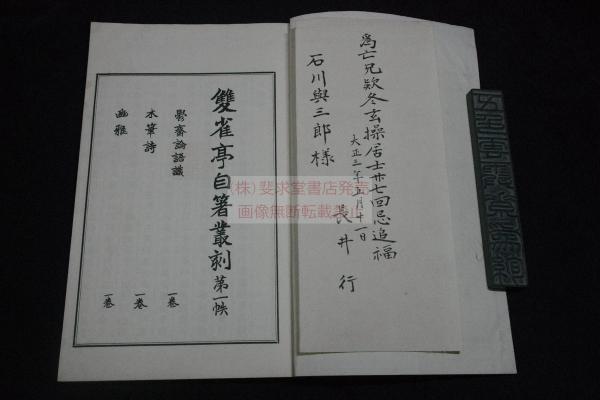 爲亡兄欵冬玄操居士卅七回忌追福
大正三年五月十一日
長井行
石川與三郎樣
雙雀亭自箸叢刻第一帙
木筆詩 一卷
幽雅 一卷
(株)斐求堂書店発売
画像無断転載禁止